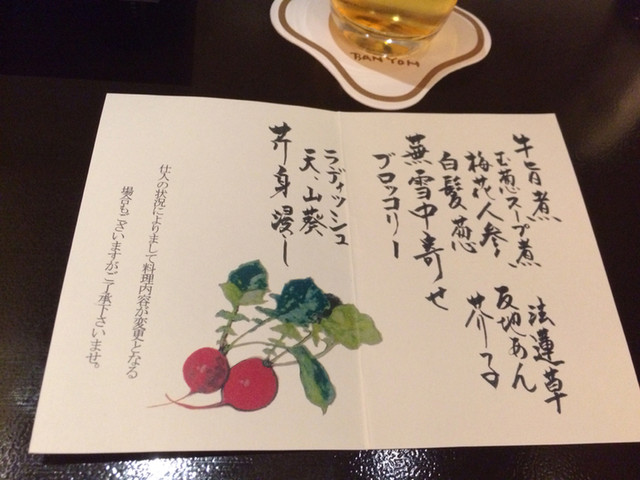 牛旨煮 法蓮草
玉葱スープ煮
梅花人参 芥子
白髪葱
蕪雪中寄せ
ブロッコリー
ラディッシュ
天、山葵
芹身浸し
仕入の状況によりまして料理内容が変更となる
場合もございますがご了承下さいませ。